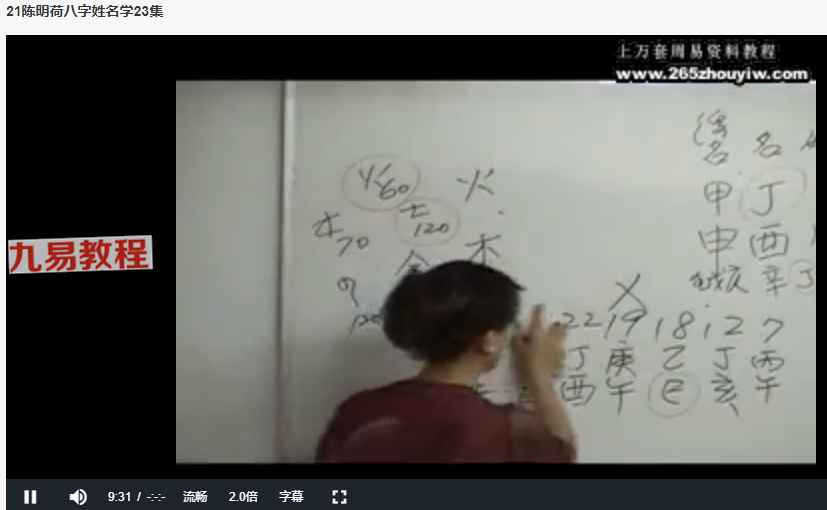 21陈明荷八字姓名学23集
上万套周易资料教程
www.265zhouyiw.com
名
火60 火
甲 丁
木70 土120 木
申 酉
九易教程
金
辛 丁
22 19 18 12 7
丁 庚 乙 丁 丙
酉 午 巳 亥 午
9:31 / -:-:- 流畅 2.0倍 字幕